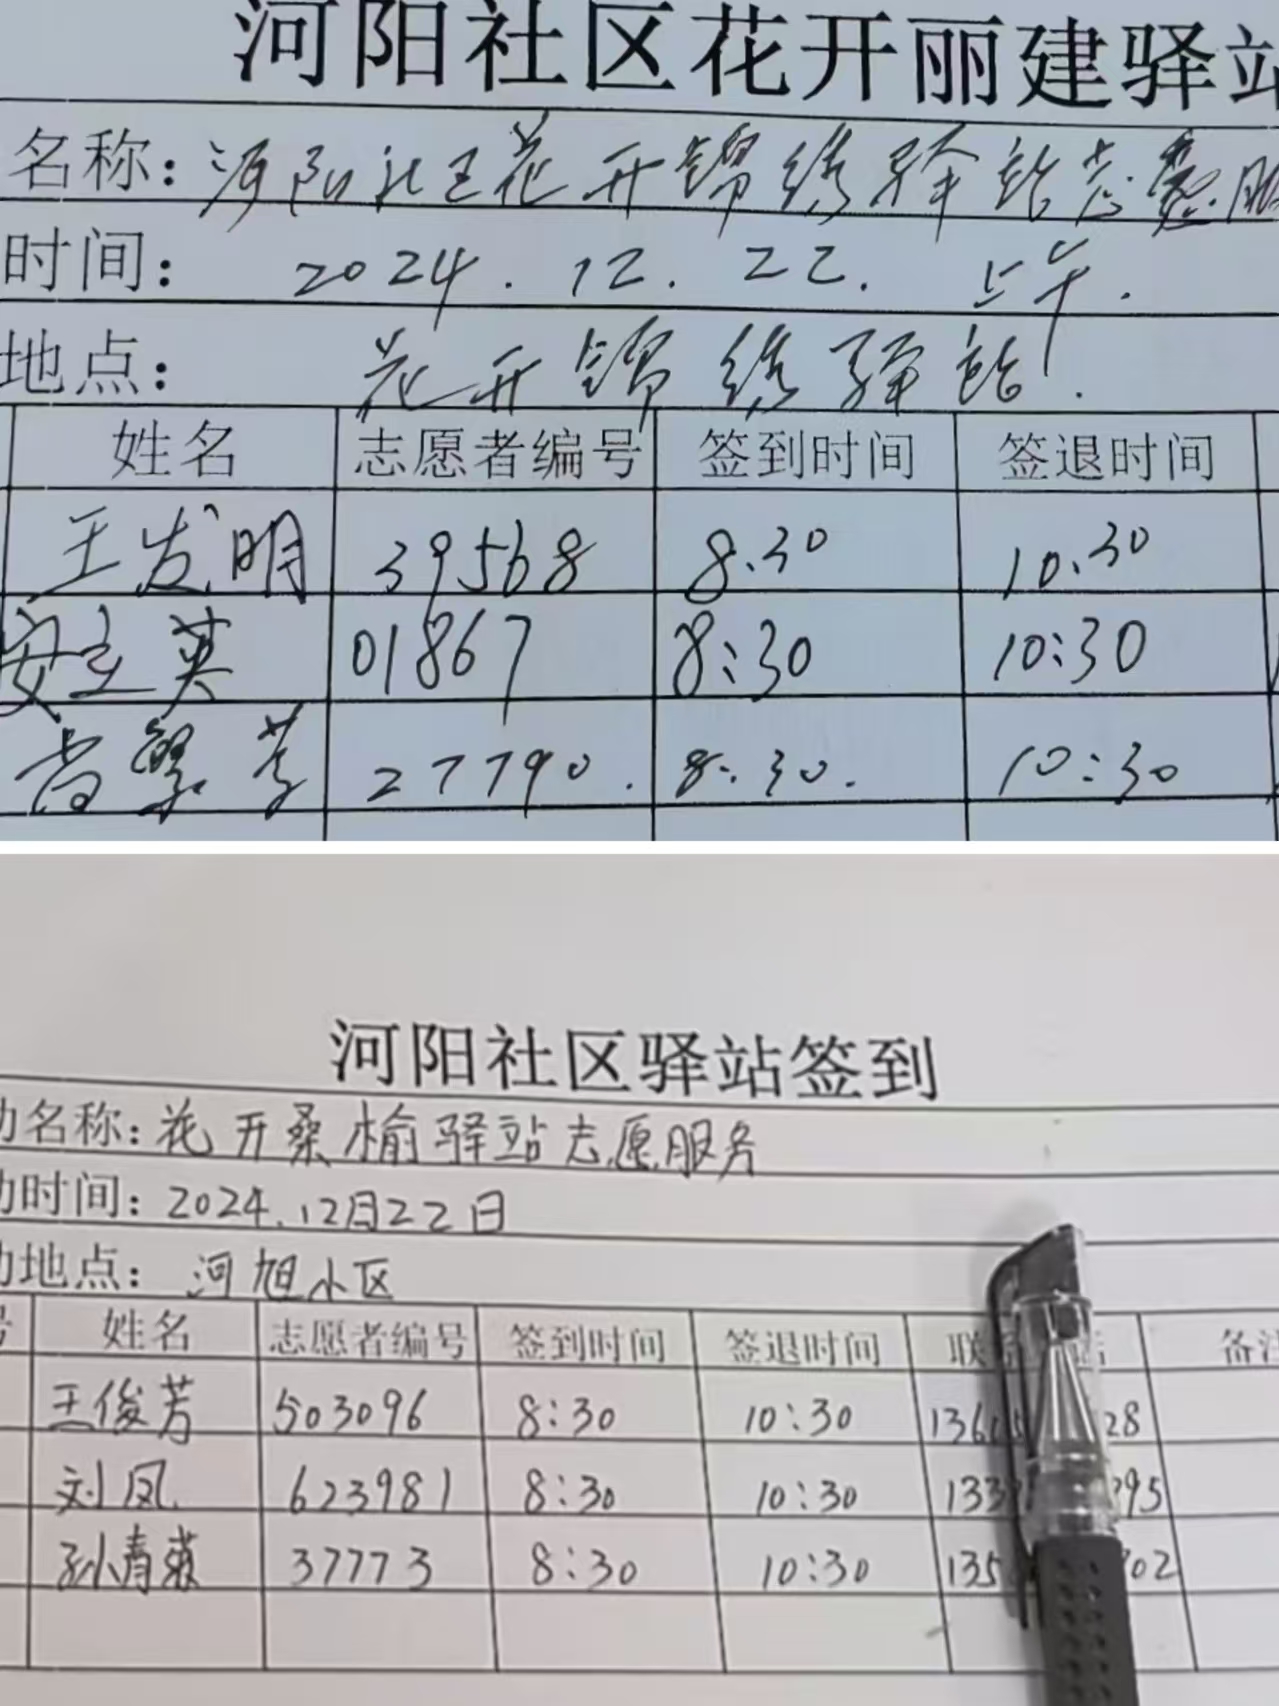 河阳社区花开丽建驿站
名称：河阳社区花开锦绣驿站志愿服
时间：2024.12.22.上午.
地点：花开锦绣驿站.
姓名 志愿者编号 签到时间 签退时间
王发明 39568 8.30 10.30
安立英 01867 8:30 10:30
27790. 8:30. 10:30
河阳社区驿站签到
动名称：花开桑榆驿站志愿服务
动时间：2024.12月22日
动地点：河旭小区
号 姓名 志愿者编号 签到时间 签退时间 联 话 备注
王俊芳 503096 8:30 10:30 136 28
刘凤 623981 8:30 10:30 133 95
孙青 37773 8:30 10:30 135 02